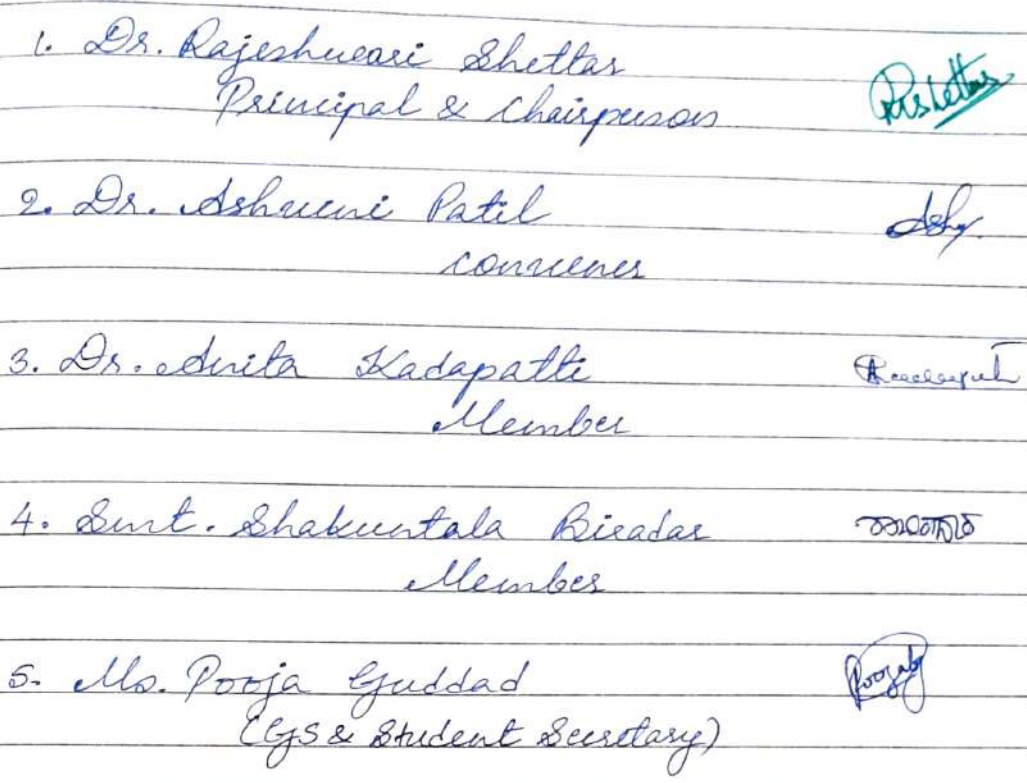 1. Dr. Rajeshwari Shettar
Principal & Chairperson
RShettar
2. Dr. Ashwini Patil
Ashy.
convener
3. Dr. Anita Kadapatti
Member
4. Smt. Shakuntala Biradar
Member
5. Ms. Pooja Guddad
Poojabg
(GS & Student Secretary)